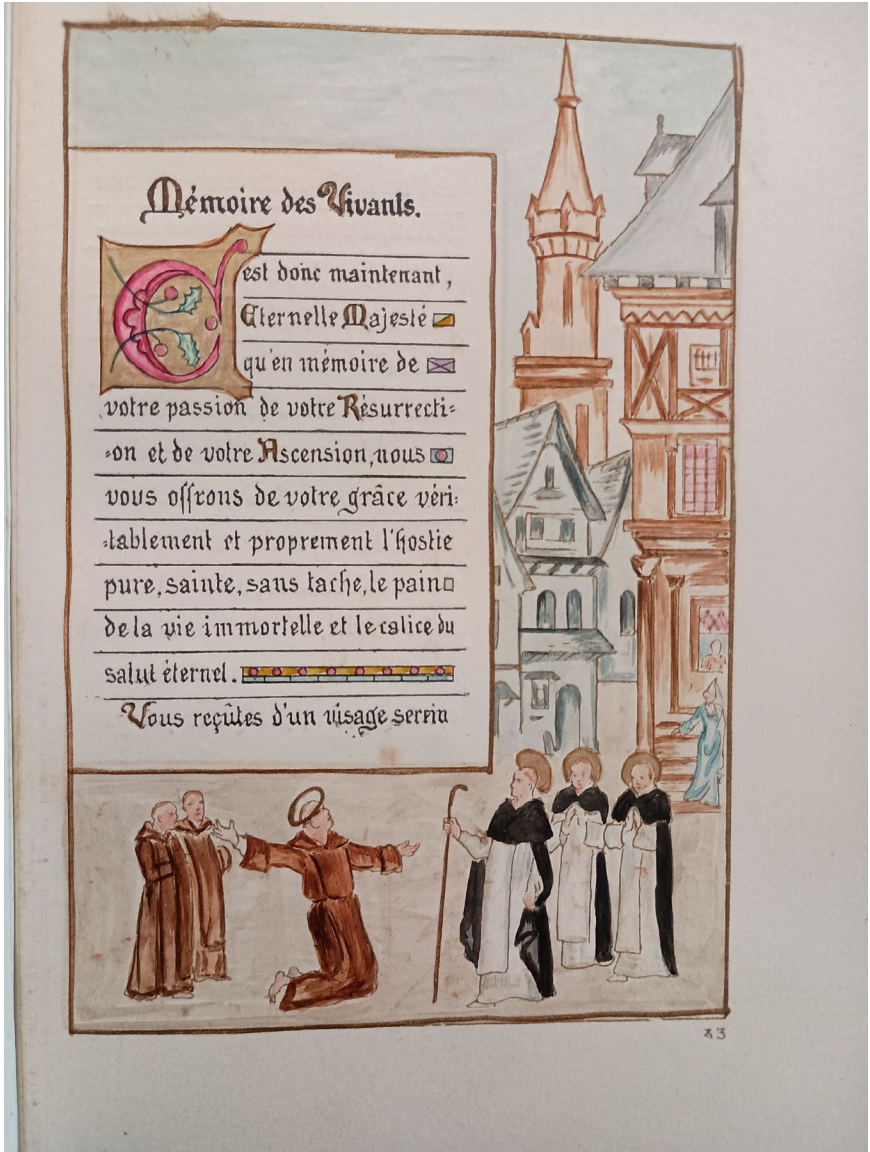 Mémoire des Vivants.
C'est donc maintenant,
Eternelle Majesté
qu'en mémoire de
votre passion de votre Résurrecti-
-on et de votre Ascension, nous
vous offrons de votre grâce véri-
-tablement et proprement l'hostie
pure, sainte, sans tache, le pain
de la vie immortelle et le calice du
salut éternel.
Vous reçûtes d'un visage serein